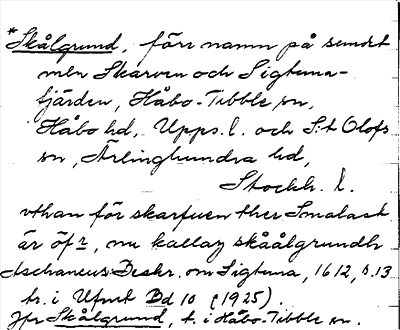 *Skålgrund, förr namn på sundet
mln Skarven och Sigtuna-
fjärden, Håbo-Tibble sn,
Håbo hd, Upps. l. och S:t Olofs
sn, Ärlinghundra hd,
Stockh. l.
vthan för skarfuen ther Smalast
är öfr, nu kallaz skåålgrundh
Aschaneus Beskr. om Sigtuna, 1612, s. 13
tr. i Ufmt Bd 10 (1925).
Jfr Skålgrund, t. i Håbo-Tibble sn.